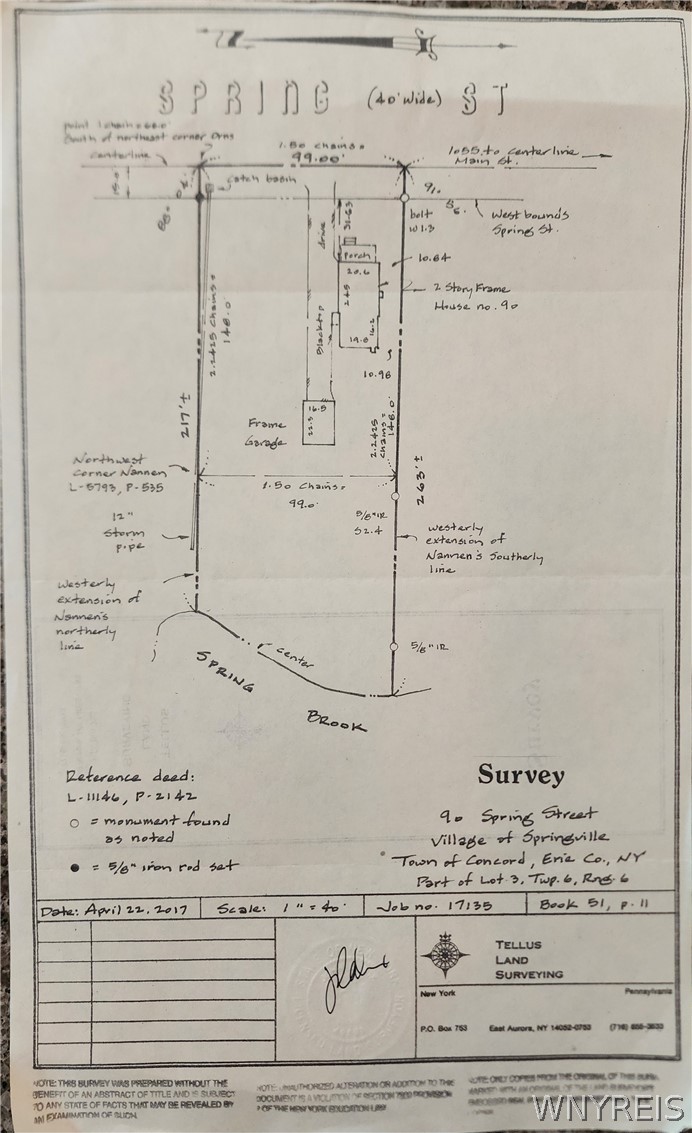 SPRING (40' Wide) ST
South of northeast corner
centerline
1.50 chains =
99.00'
1055 to centerline
Main St.
15.0
catch basin
West bounds
Spring St.
bolt
W 1.3
31.63
drive
Porch
20.6
10.64
24.5
2 Story Frame
House no. 90
16.2
19.8
Blacktop
10.98
2.2425 chains =
148.0'
2.2425
chains =
148.0'
217' ±
263' ±
16.5
22.3
Frame
Garage
Northwest
corner Nannen
L-5793, P-535
1.50 chains =
99.0'
12"
storm
pipe
5/8" IR
S2.4
westerly
extension of
Nannen's Southerly
line
Westerly
extension of
Nannen's
northerly
line
5/8" IR
center
SPRING
BROOK
Reference deed:
L-11146, P-2142
○ = monument found
as noted
● = 5/8" iron rod set
Survey
90 Spring Street
Village of Springville
Town of Concord, Erie Co., NY
Part of Lot 3, Twp. 6, Rng. 6
Date: April 22, 2017
Scale: 1" = 40'
Job no. 17135
Book 51, p. 11
TELLUS
LAND
SURVEYING
New York Pennsylvania
P.O. Box 753 East Aurora, NY 14052-0753
NOTE: THIS SURVEY WAS PREPARED WITHOUT THE
BENEFIT OF AN ABSTRACT OF TITLE AND IS SUBJECT
TO ANY STATE OF FACTS THAT MAY BE REVEALED BY
AN EXAMINATION OF SUCH.
NOTE: UNAUTHORIZED ALTERATION OR ADDITION TO THIS
DOCUMENT IS A VIOLATION OF SECTION 7209 PROVISION
2 OF THE NEW YORK EDUCATION LAW
NOTE: ONLY COPIES FROM THE ORIGINAL OF THIS SURVEY
WNYREIS